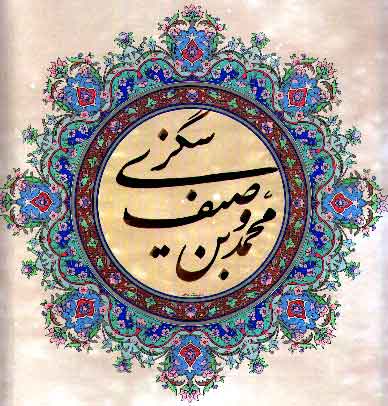 محمد بن وصیف سگزی